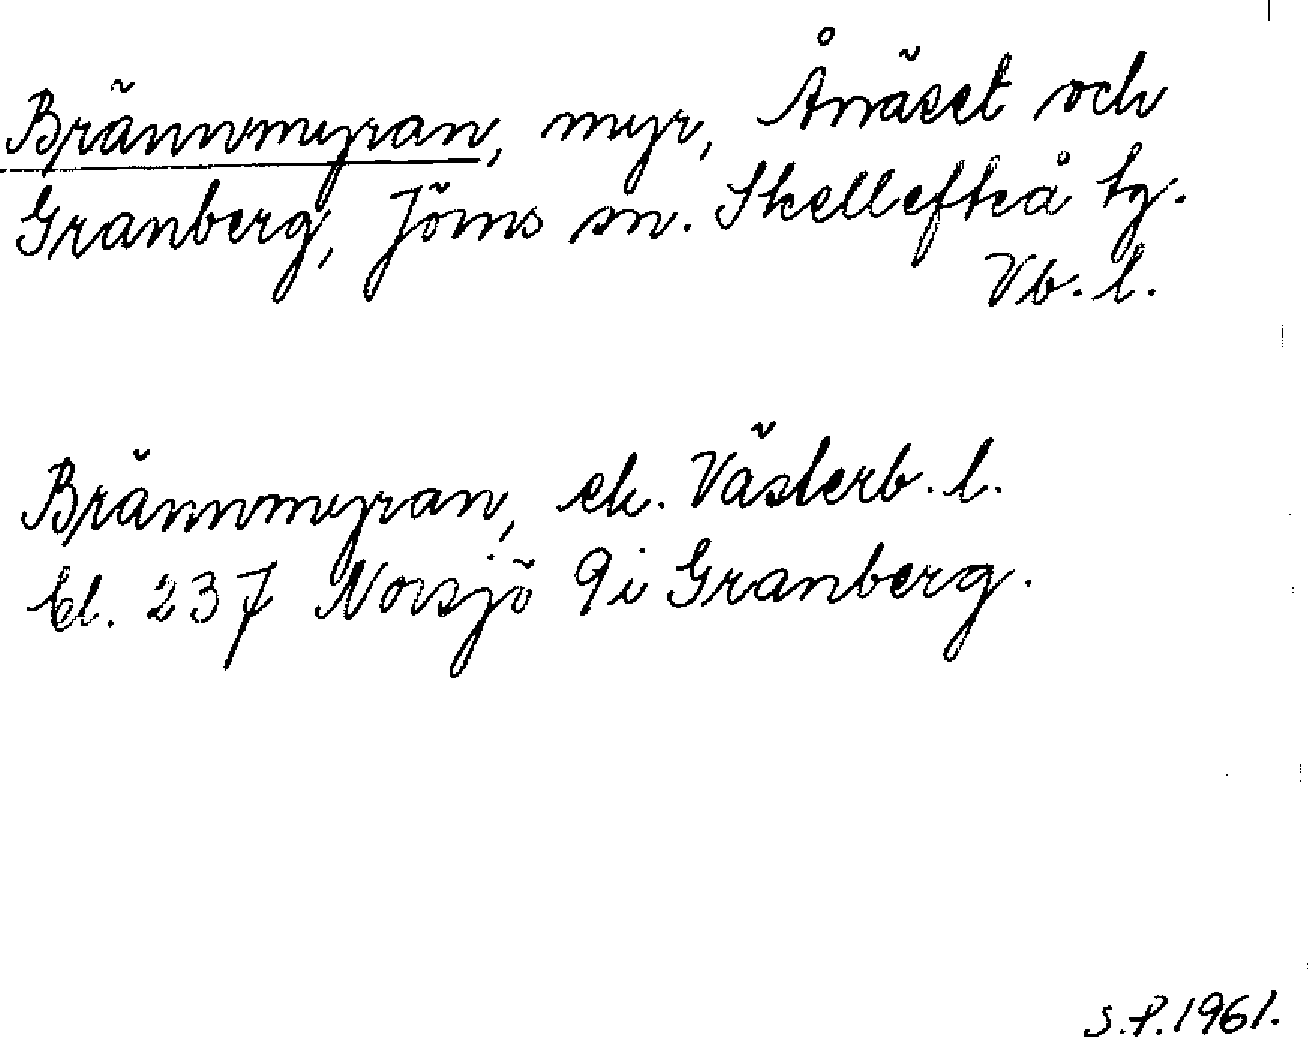 Brännmyran, myr, Ånäset och
Granberg, Jörns sn. Skellefteå tg.
Vb. l.
Brännmyran, ek. Västerb. l.
bl. 237 Norsjö 9i Granberg.
S.P. 1961.